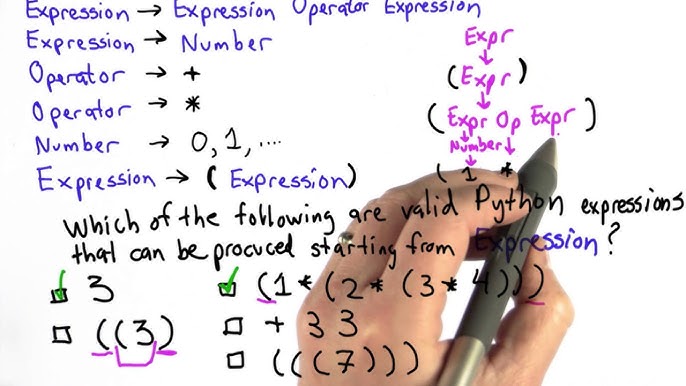 Expression → Expression Operator Expression
Expression → Number
Operator → +
Operator → *
Number → 0, 1, ....
Expression → ( Expression )
Expr
( Expr )
( Expr Op Expr )
Number
( 1 *
Which of the following are valid Python expressions
that can be procuced starting from Expression?
3
(1 * (2 * (3 * 4)))
((3)
+ 3 3
(((7)))